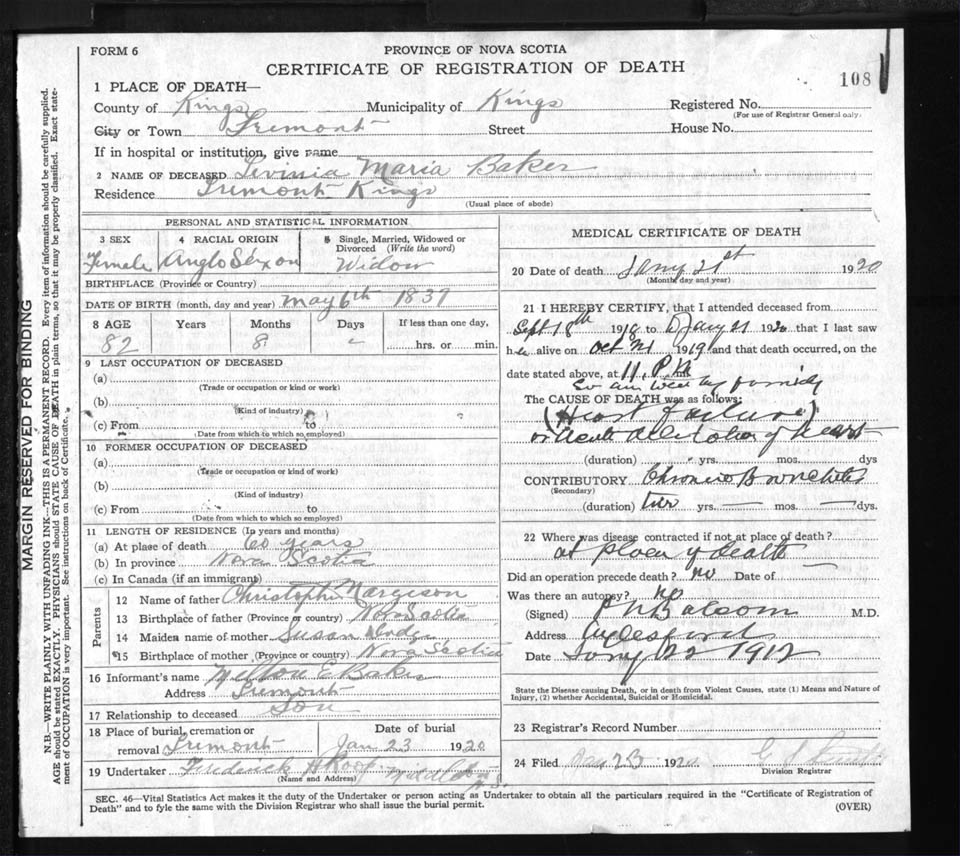 FORM 6
PROVINCE OF NOVA SCOTIA
CERTIFICATE OF REGISTRATION OF DEATH
108
1 PLACE OF DEATH—
County of Kings Municipality of Kings Registered No.
(For use of Registrar General only.
City or Town Tremont Street House No.
If in hospital or institution, give name
2 NAME OF DECEASED Levinia Maria Baker
Residence Tremont Kings
(Usual place of abode)
PERSONAL AND STATISTICAL INFORMATION
3 SEX 4 RACIAL ORIGIN 5 Single, Married, Widowed or Divorced (Write the word)
Female Anglo Sexon Widow
BIRTHPLACE (Province or Country)
DATE OF BIRTH (month, day and year) May 6th 1837
8 AGE Years Months Days If less than one day,
82 8 hrs. or min.
9 LAST OCCUPATION OF DECEASED
(a)
(Trade or occupation or kind of work)
(b)
(Kind of industry)
(c) From to
(Date from which to which so employed)
10 FORMER OCCUPATION OF DECEASED
(a)
(Trade or occupation or kind of work)
(b)
(Kind of industry)
(c) From to
(Date from which to which so employed)
11 LENGTH OF RESIDENCE (In years and months)
(a) At place of death 60 years
(b) In province Nova Scotia
(c) In Canada (if an immigrant)
Parents
12 Name of father Christopher Margeson
13 Birthplace of father (Province or country) Nova Scotia
14 Maiden name of mother Susan
15 Birthplace of mother (Province or country) Nova Scotia
16 Informant's name Milton E Baker
Address Tremont
17 Relationship to deceased Son
18 Place of burial, cremation or removal Tremont
Date of burial
Jan 23 1920
19 Undertaker Frederick H Roop N.S.
(Name and Address)
MEDICAL CERTIFICATE OF DEATH
20 Date of death Jany 21st 1920
(Month, day and year)
21 I HEREBY CERTIFY, that I attended deceased from
Sept 18th 191 to Jany 21 1920 that I last saw
her alive on Oct 1919 and that death occurred, on the
date stated above, at 11 P.M
family
The CAUSE OF DEATH was as follows:
(Heart failure)
or Acute dilitation of heart
(duration) yrs. mos. dys
CONTRIBUTORY Chronic Bronchitis
(Secondary)
(duration) yrs. mos. dys.
22 Where was disease contracted if not at place of death?
at place of death
Did an operation precede death? no Date of
Was there an autopsy? no
(Signed) Balcom M.D.
Address Aylesford
Date Jany 22 1912
State the Disease causing Death, or in death from Violent Causes, state (1) Means and Nature of
Injury, (2) whether Accidental, Suicidal or Homicidal.
23 Registrar's Record Number
24 Filed Jan 23 1920
Division Registrar
SEC. 46—Vital Statistics Act makes it the duty of the Undertaker or person acting as Undertaker to obtain all the particulars required in the "Certificate of Registration of
Death" and to fyle the same with the Division Registrar who shall issue the burial permit.
(OVER)
MARGIN RESERVED FOR BINDING
N.B.—WRITE PLAINLY WITH UNFADING INK—THIS IS A PERMANENT RECORD. Every item of information should be carefully supplied.
AGE should be stated EXACTLY. PHYSICIANS should STATE CAUSE OF DEATH in plain terms, so that it may be properly classified. Exact statement of OCCUPATION is very important. See instructions on back of Certificate.